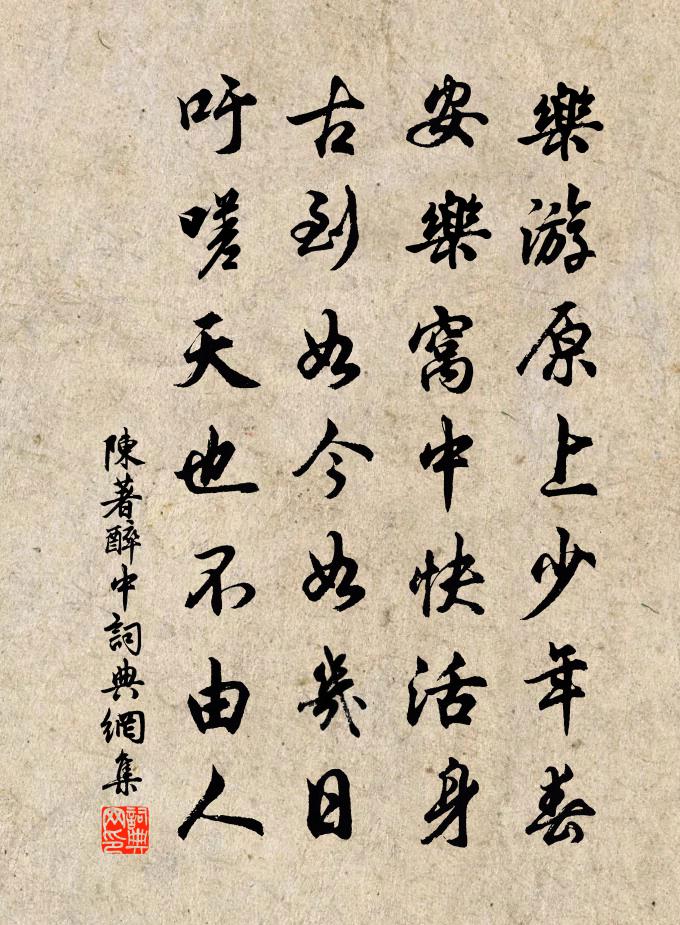 樂游原上少年春
安樂窩中快活身
古到如今如幾日
吁嗟天也不由人
陳著醉中詞典網集
詞典網印